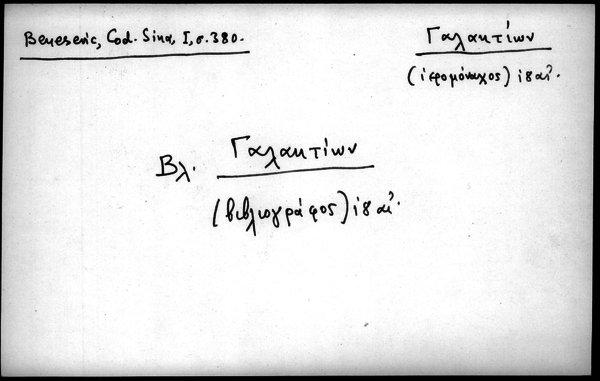 Beneševic, Cod. Sina, I, σ. 380.
Γαλακτίων
(ἱερομόναχος) ιδ αἰ.
Βλ. Γαλακτίων
(βιβλιογράφος) ιδ αἰ.